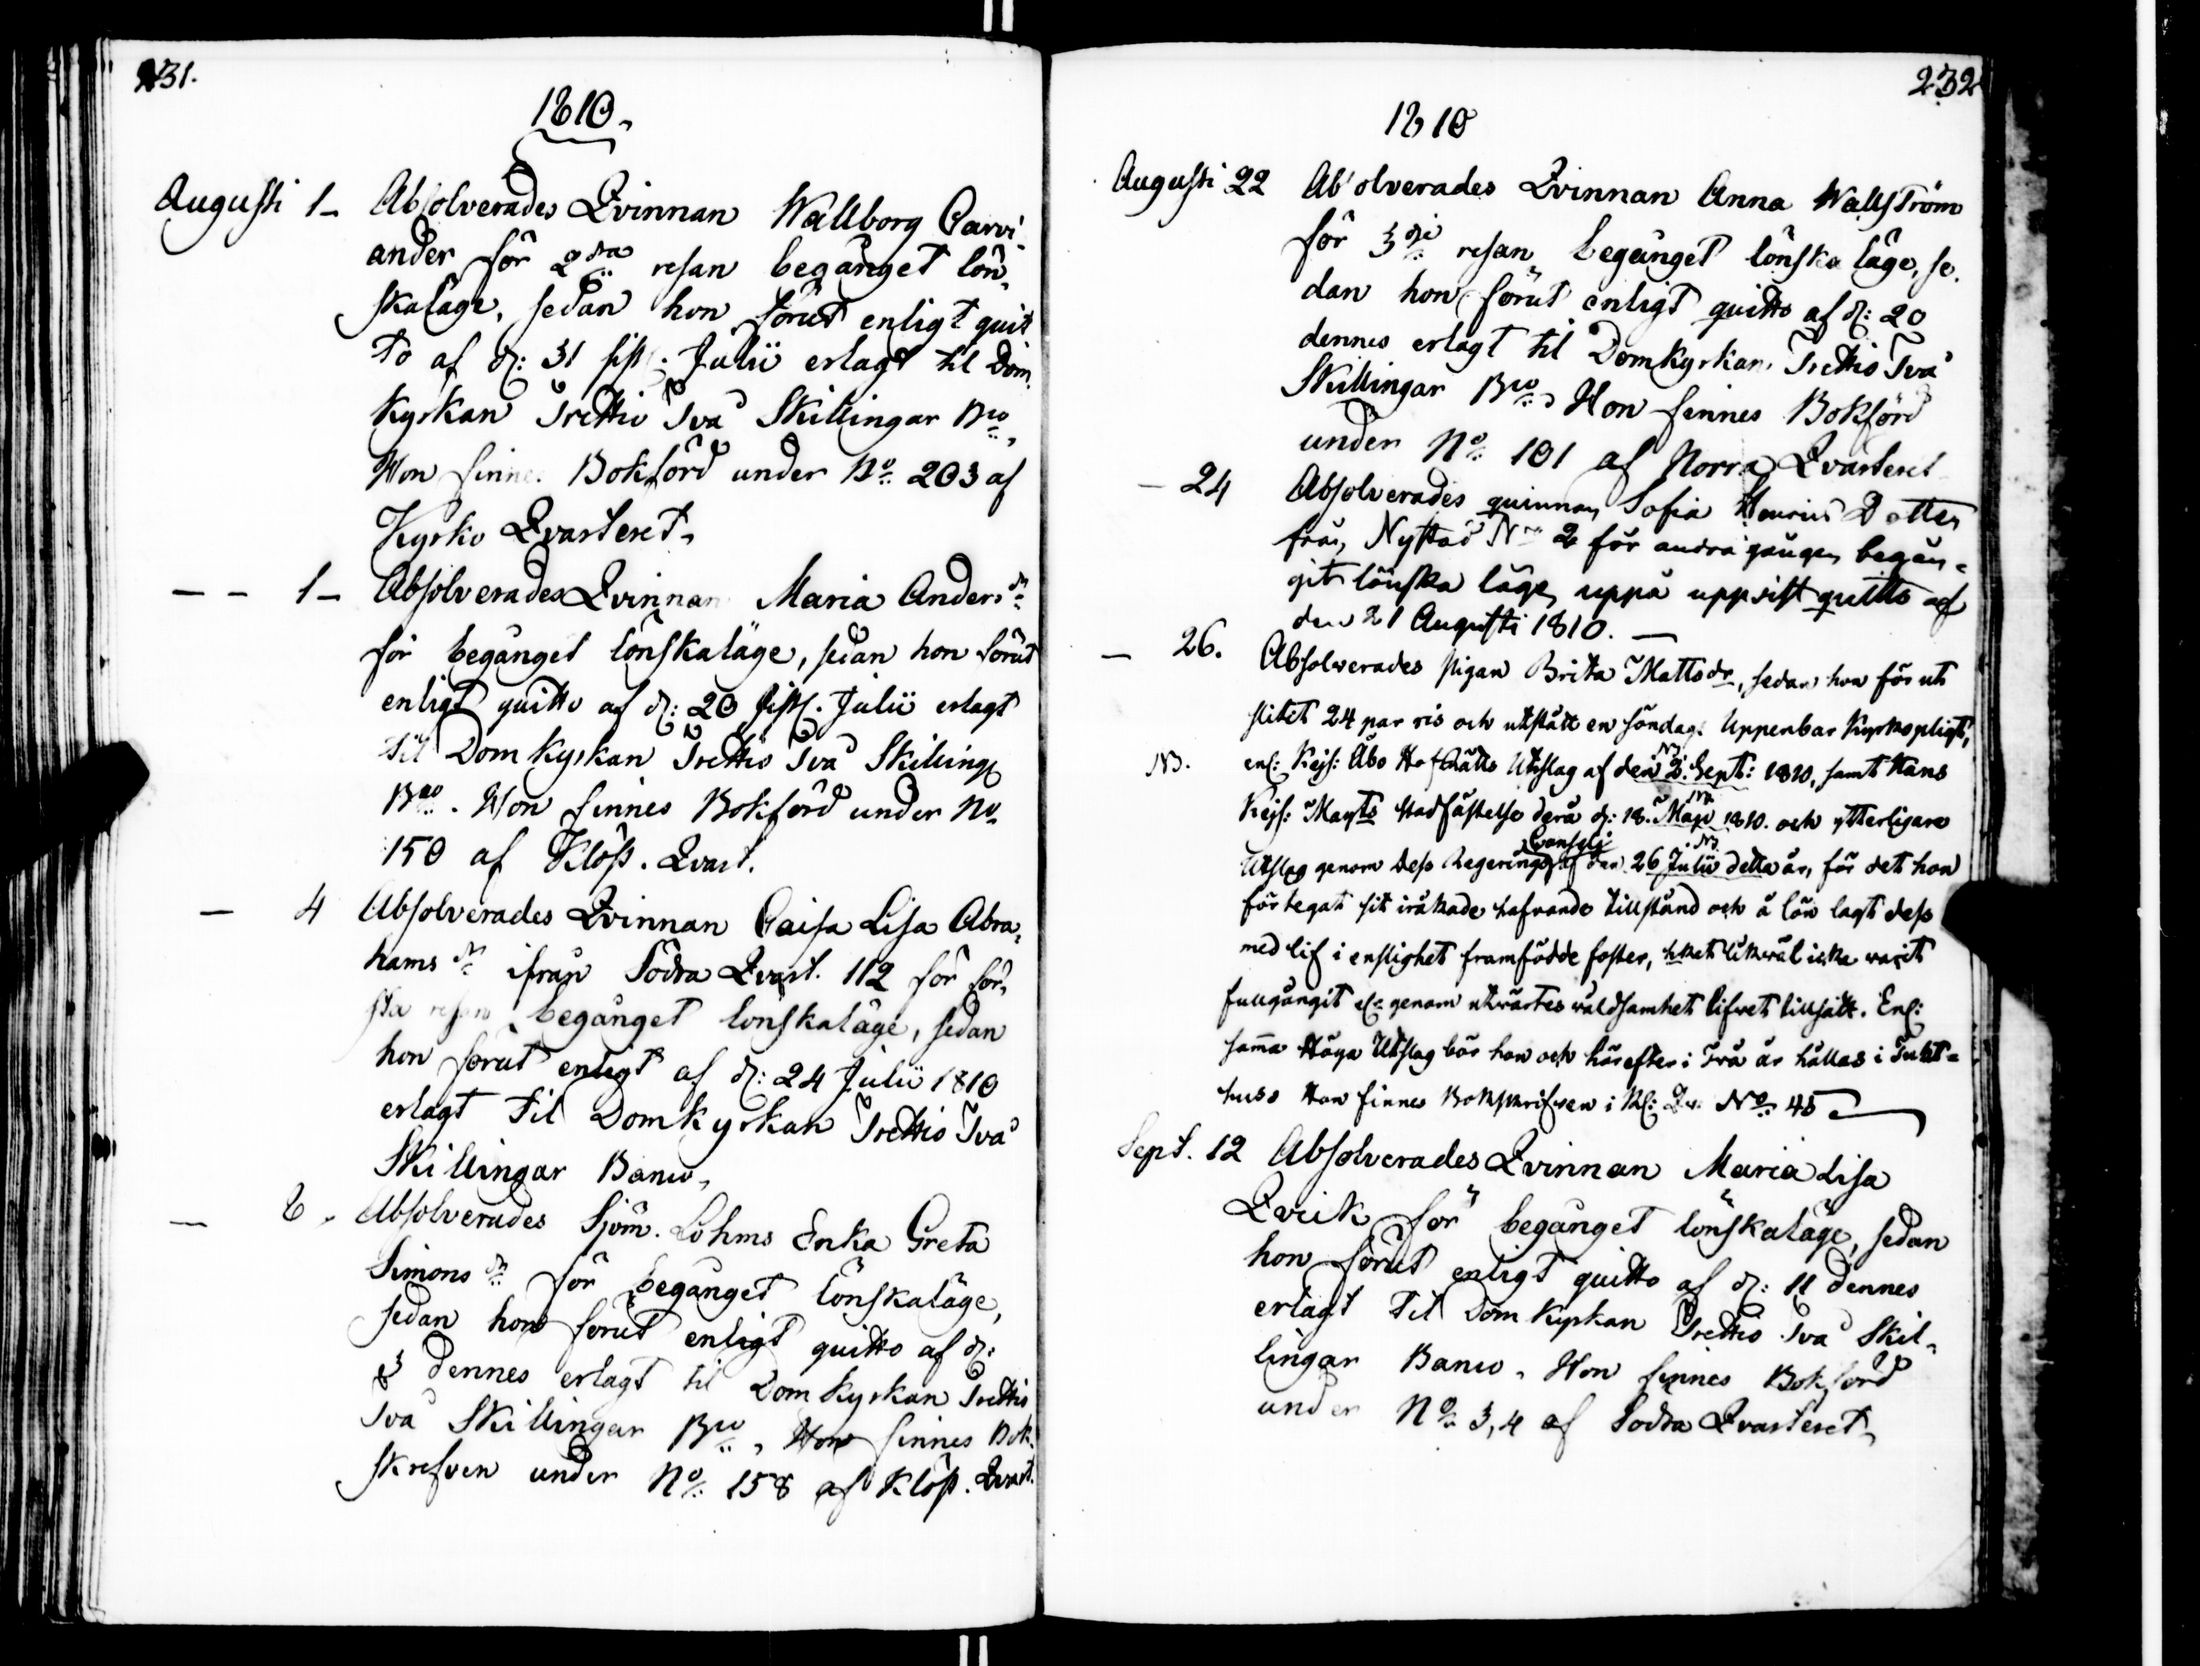 231.
1810.
Augusti 1_ Absolverades Qvinnan Wallborg Carvi¬
ander för 2dra resan begånget lön¬
skaläge, sedan hon förut enligt quit
to af d: 31 sistl. Julii erlagt til Dom¬
kyrkan Trettio Två Skillingar Bco.
Hon finnes Bokförd under No 203 af
Kyrko Qvarteret.
_ _ 1_ Absolverades Qvinnan Maria Andersdr
för begånget lönskaläge, sedan hon förut
enligt quitto af d: 20 sistl. Julii erlagt
til Domkyrkan Trettio Två Skilling
Bco. Hon finnes Bokförd under No
150 af Klöst. Qvart.
_ 4 Absolverades Qvinnan Caisa Lisa Abra¬
hams dr ifrån Södra Qvart. 112 för för¬
sta resan begånget lönskaläge, sedan
hon förut enligt af d: 24 Julii 1810
erlagt til Domkyrkan Trettio Två
Skillingar Banco.
_ 8. Absolverades Sjöm. Lohms Enka Greta
Simons dr för begånget lönskaläge,
sedan hon förut enligt quitto af d:
3 dennes erlagt til Domkyrkan Trettio
Två Skillingar Bco. Hon finnes Bok¬
skrefven under No 158 af Klöst. Qvart.
232
1810
Augusti 22 Absolverades Qvinnan Anna Wallström
för 3dje resan begånget lönska läge, se¬
dan hon förut enligt quitto af d: 20
dennes erlagt til Domkyrkan Trettio Två
Skillingar Bco. Hon finnes Bokförd
under No 101 af Norra Qvarteret
_ 24 Absolverades quinnan Sofia Henrics Dotter
från Nystad No 2 för andra gången begån¬
git lönska läge, uppå uppvist quitto af
den 21 Augusti 1810. _
_ 26. Absolverades pigan Brita Mattsdr, sedan hon förut
slitet 24 par ris och utstått en söndags Uppenbar Kyrkopligt,
NB. enl: Kejs: Åbo HofRätts Utslag af den NB 2. Sept: 1810, samt Hans
Kejs: Mayts stadfästelse derå d: 18. NB Maji 1810. och ytterligare
Utslag genom dess Regerings Conselj af den 26 NB Julii detta år, för det hon
förtegat sit iråkade hafvande tillstånd och å lön lagt dess
med lif i enslighet framfödde foster, hket likväl icke varit
fullgångit el: genom utvärtes våldsamhet lifvet tillsatt. Enl:
samma Höga Utslag bör hon och härefter i Två år hållas i Tukt=
huss Hon finnes Bokskrifven i Kl: Qv. No 45
Sept. 12 Absolverades Qvinnan Maria Lisa
Qviik för begånget lönskaläge, sedan
hon förut enligt quitto af d: 11 dennes
erlagt til Domkyrkan Trettio Två Skil¬
lingar Banco. Hon finnes Bokförd
under No 3,4 af Södra Qvarteret.